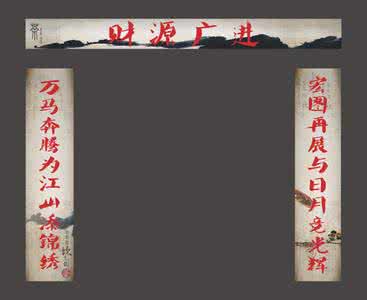 财源广进
万马奔腾为江山添锦绣
宏图再展与日月竞光辉